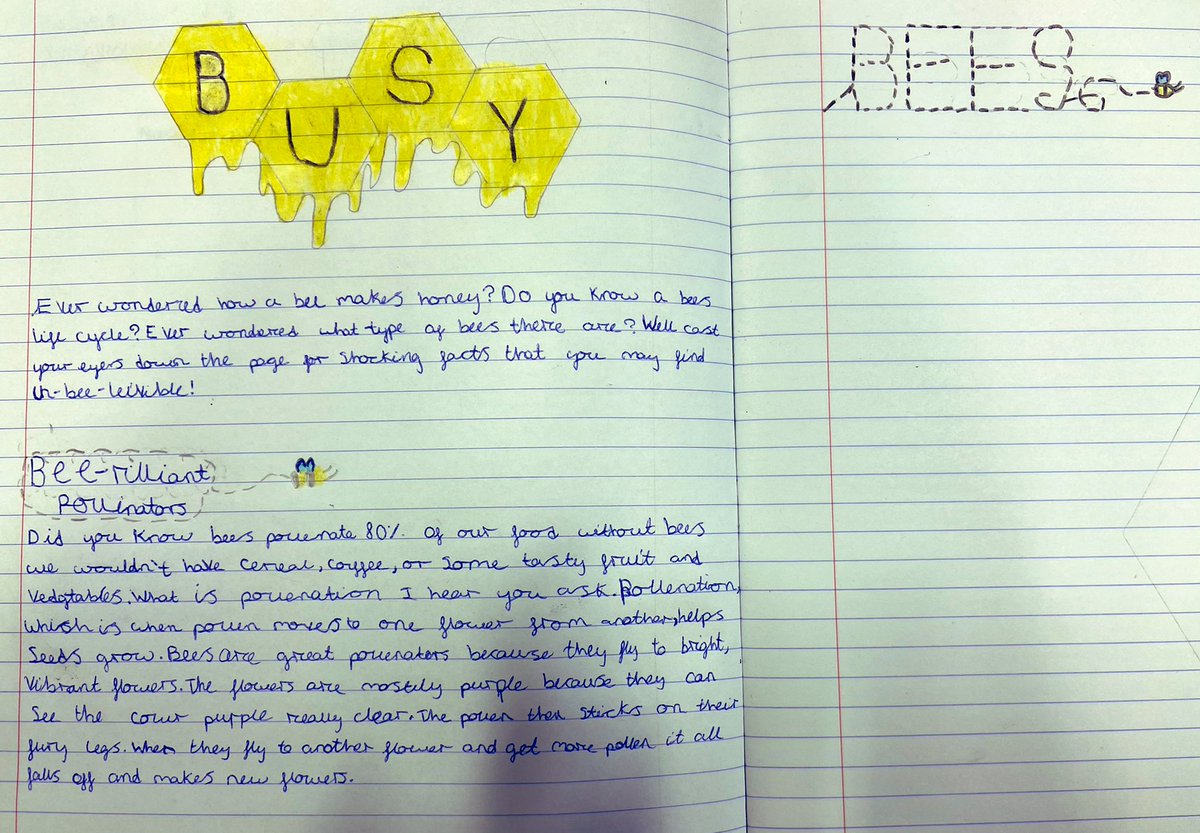 BUSY
BEES
Ever wonderred how a bee makes honey? Do you know a bees
life cycle? Ever wondered what type of bees there are? Well cast
your eyers down the page for shocking facts that you may find
un-bee-leivible!
Bee-rilliant
Pollinators
Did you know bees pollenate 80% of our food without bees
we wouldn't have cereal, coffee, or some tasty fruit and
vedgtables. What is pollenation I hear you ask. Pollenation,
which is when pollen moves to one flower from another, helps
seeds grow. Bees are great pollenaters because they fly to bright,
vibrant flowers. The flowers are mostely purple because they can
see the colour purple really clear. The pollen then sticks on their
fury legs. When they fly to another flower and get more pollen it all
falls off and makes new flowers.